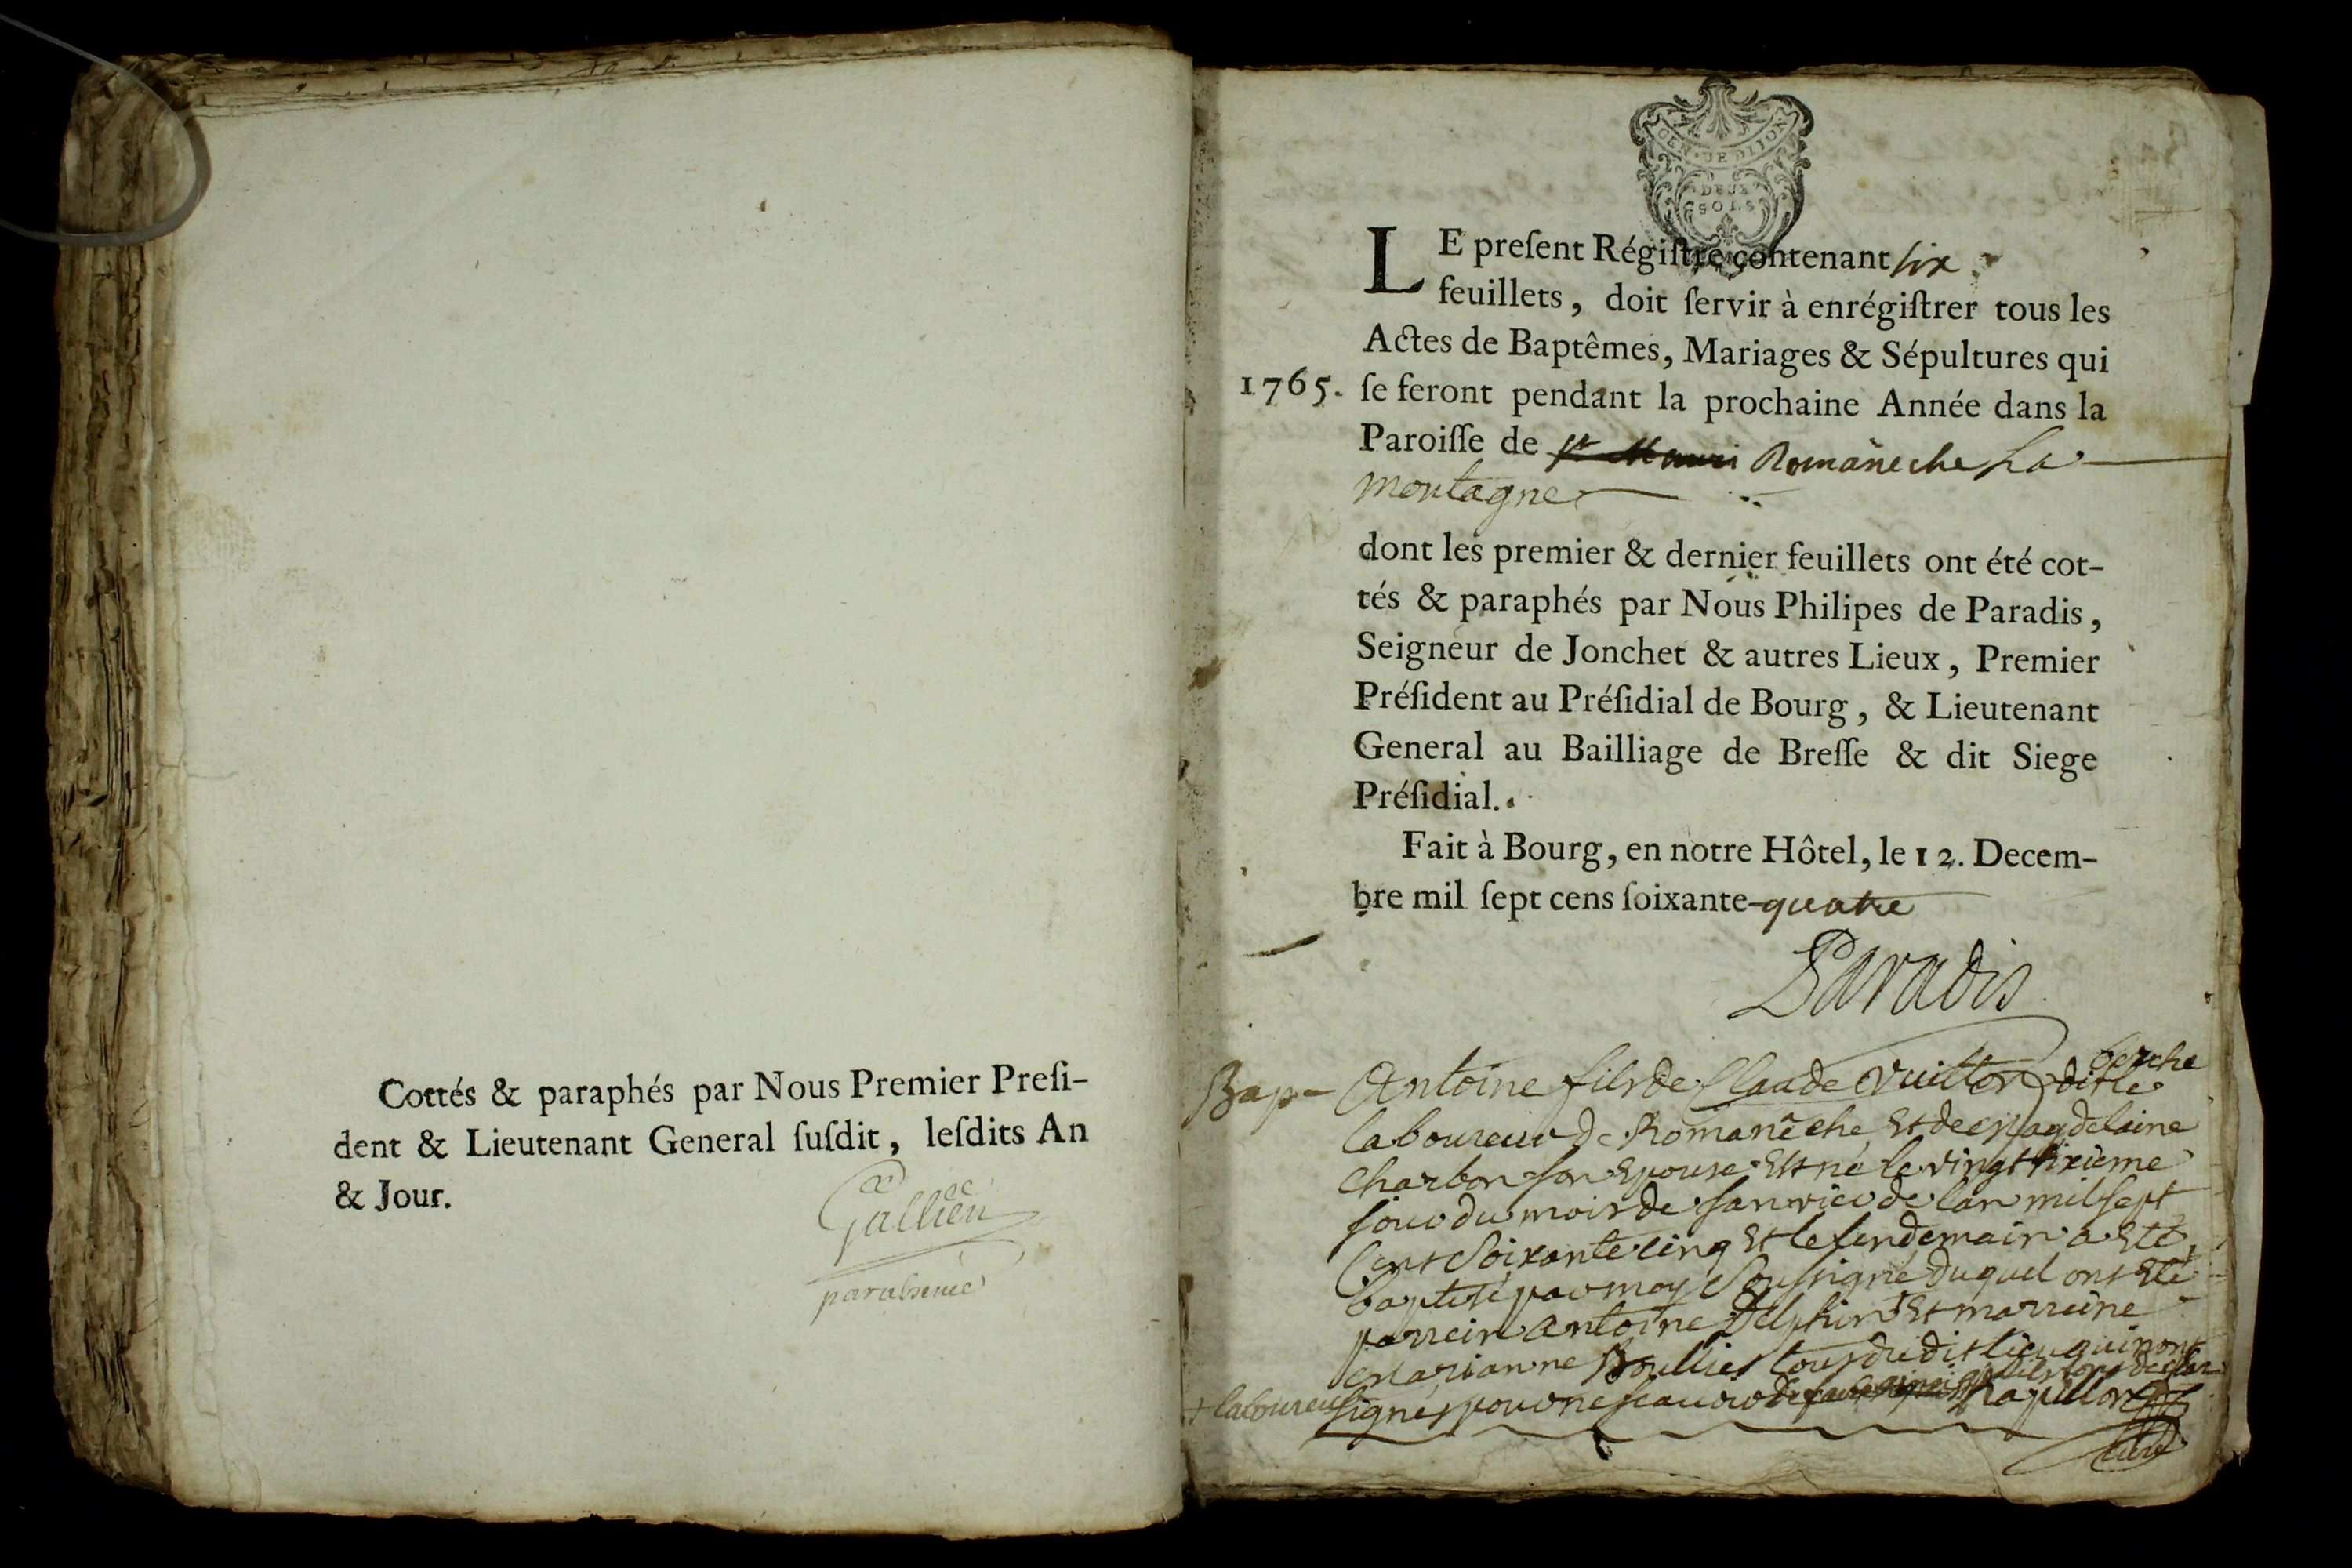 Cottés & paraphés par Nous Premier Presi-
dent & Lieutenant General susdit, lesdits An
& Jour.
Gallien
GEN. DE DIJON
DEUX
SOLS
LE present Régistre contenant six
feuillets, doit servir à enrégistrer tous les
Actes de Baptêmes, Mariages & Sépultures qui
1765. se feront pendant la prochaine Année dans la
Paroisse de Romaneche La
montagne
dont les premier & dernier feuillets ont été cot-
tés & paraphés par Nous Philipes de Paradis,
Seigneur de Jonchet & autres Lieux, Premier
Président au Présidial de Bourg, & Lieutenant
General au Bailliage de Bresse & dit Siege
Présidial.
Fait à Bourg, en notre Hôtel, le 12. Decem-
bre mil sept cens soixante-quatre
Paradis
Bap- Antoine fils de Claude Vuitton dit le berche
laboureur de Romanêche Et de Magdelaine
Charbon son Epouse Est né le vingt sixieme
jour du mois de janvier de l'an mil sept
Cent Soixante cinq Et le lendemain a Eté
baptisé par moy Soussigné duquel ont Eté
parrein antoine Delphin + Et marreine
Marianne Boullier tous du dit lieu qui n'ont
+ laboureur signés pour ne scavoir